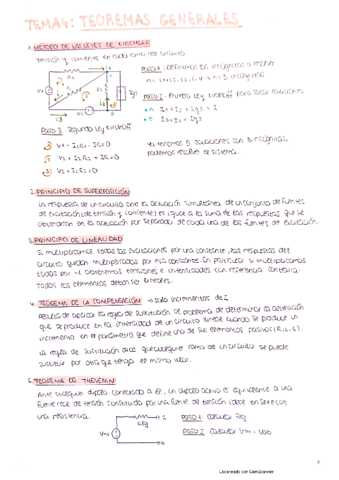 TEMA 4: TEOREMAS GENERALES
1. MÉTODO DE LAS LEYES DE KIRCHOFF
tensión y corriente en cada rama del circuito
PASO 1: Definimos las incógnitas a hallar
PASO 2: Primera Ley Kirchoff para sacar ecuaciones
A I1 + I2 + Ig = 0
B
PASO 3: Segunda Ley Kirchoff
Ya tenemos 5 ecuaciones con 5 incógnitas,
podemos resolver el sistema.
2. PRINCIPIO DE SUPERPOSICIÓN
La respuesta de un circuito ante la actuación simultánea de un conjunto de fuentes
de excitación (de tensión y corriente) es igual a la suma de las respuestas que se
obtendrían en la actuación por separado de cada una de las fuentes de excitación.
3. PRINCIPIO DE LINEALIDAD
Si multiplicamos todas las excitaciones por una constante, las respuestas del
circuito quedan multiplicadas por esa constante. En particular si multiplicamos
todas por -1 obtenemos tensiones e intensidades con referencia contraria.
Todos los elementos deben ser lineales.
4. TEOREMA DE LA COMPENSACIÓN → solo incrementos de I
Resulta de aplicar la regla de sustitución al problema de determinar la alteración
que se produce en la intensidad de un circuito lineal cuando se produce un
incremento en el parámetro que define uno de sus elementos pasivos (R, L, C).
La regla de sustitución dice que cualquier rama de un circuito se puede
sustituir por otra que tenga el mismo valor.
5. TEOREMA DE THEVENIN
Ante cualquier dipolo conectado a él, un dipolo activo es equivalente a una
fuente real de tensión constituida por una fuente de tensión ideal en serie con
una resistencia.
PASO 1: Calcular Req
PASO 2: Calcular VTH = VAB
Escaneado con CamScanner